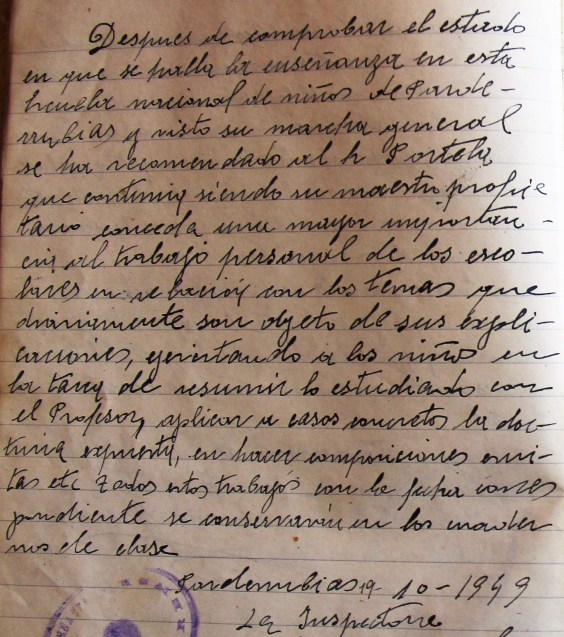 Despues de comprobar el estado
en que se halla la enseñanza en esta
Escuela nacional de niños de Parde-
rrubias y visto su marcha general
se ha recomendado al Sr Portela
que continua siendo su maestro propie
tario conceda una mayor importan-
cia al trabajo personal de los esco-
lares en relación con los temas que
diariamente son objeto de sus expli-
caciones, ejercitando a los niños en
la tarea de resumir lo estudiado con
el Profesor, aplicar a casos concretos la doc-
trina expuesta, en hacer composiciones escri-
tas etc Todos estos trabajos con la fecha corres
pondiente se conservarán en los cuader
nos de clase
Parderrubias 19-10-1949
La Inspectora